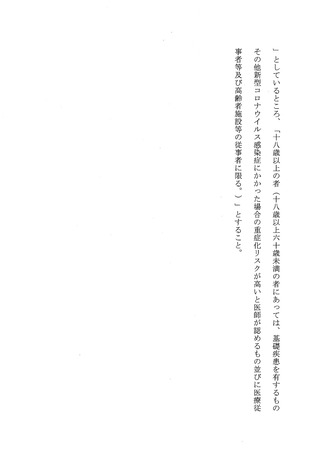 」としているところ、「十八歳以上の者（十八歳以上六十歳未満の者にあっては、基礎疾患を有するもの
その他新型コロナウイルス感染症にかかった場合の重症化リスクが高いと医師が認めるもの並びに医療従
事者等及び高齢者施設等の従事者に限る。）」とすること。